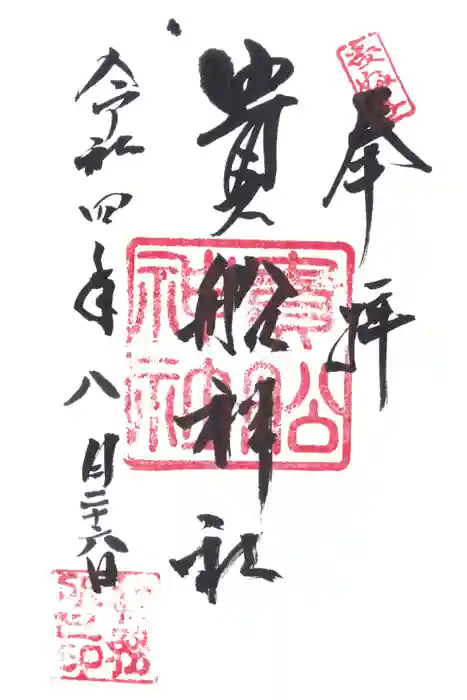 奉拝
貴船神社
令和四年八月二十六日
貴船神社